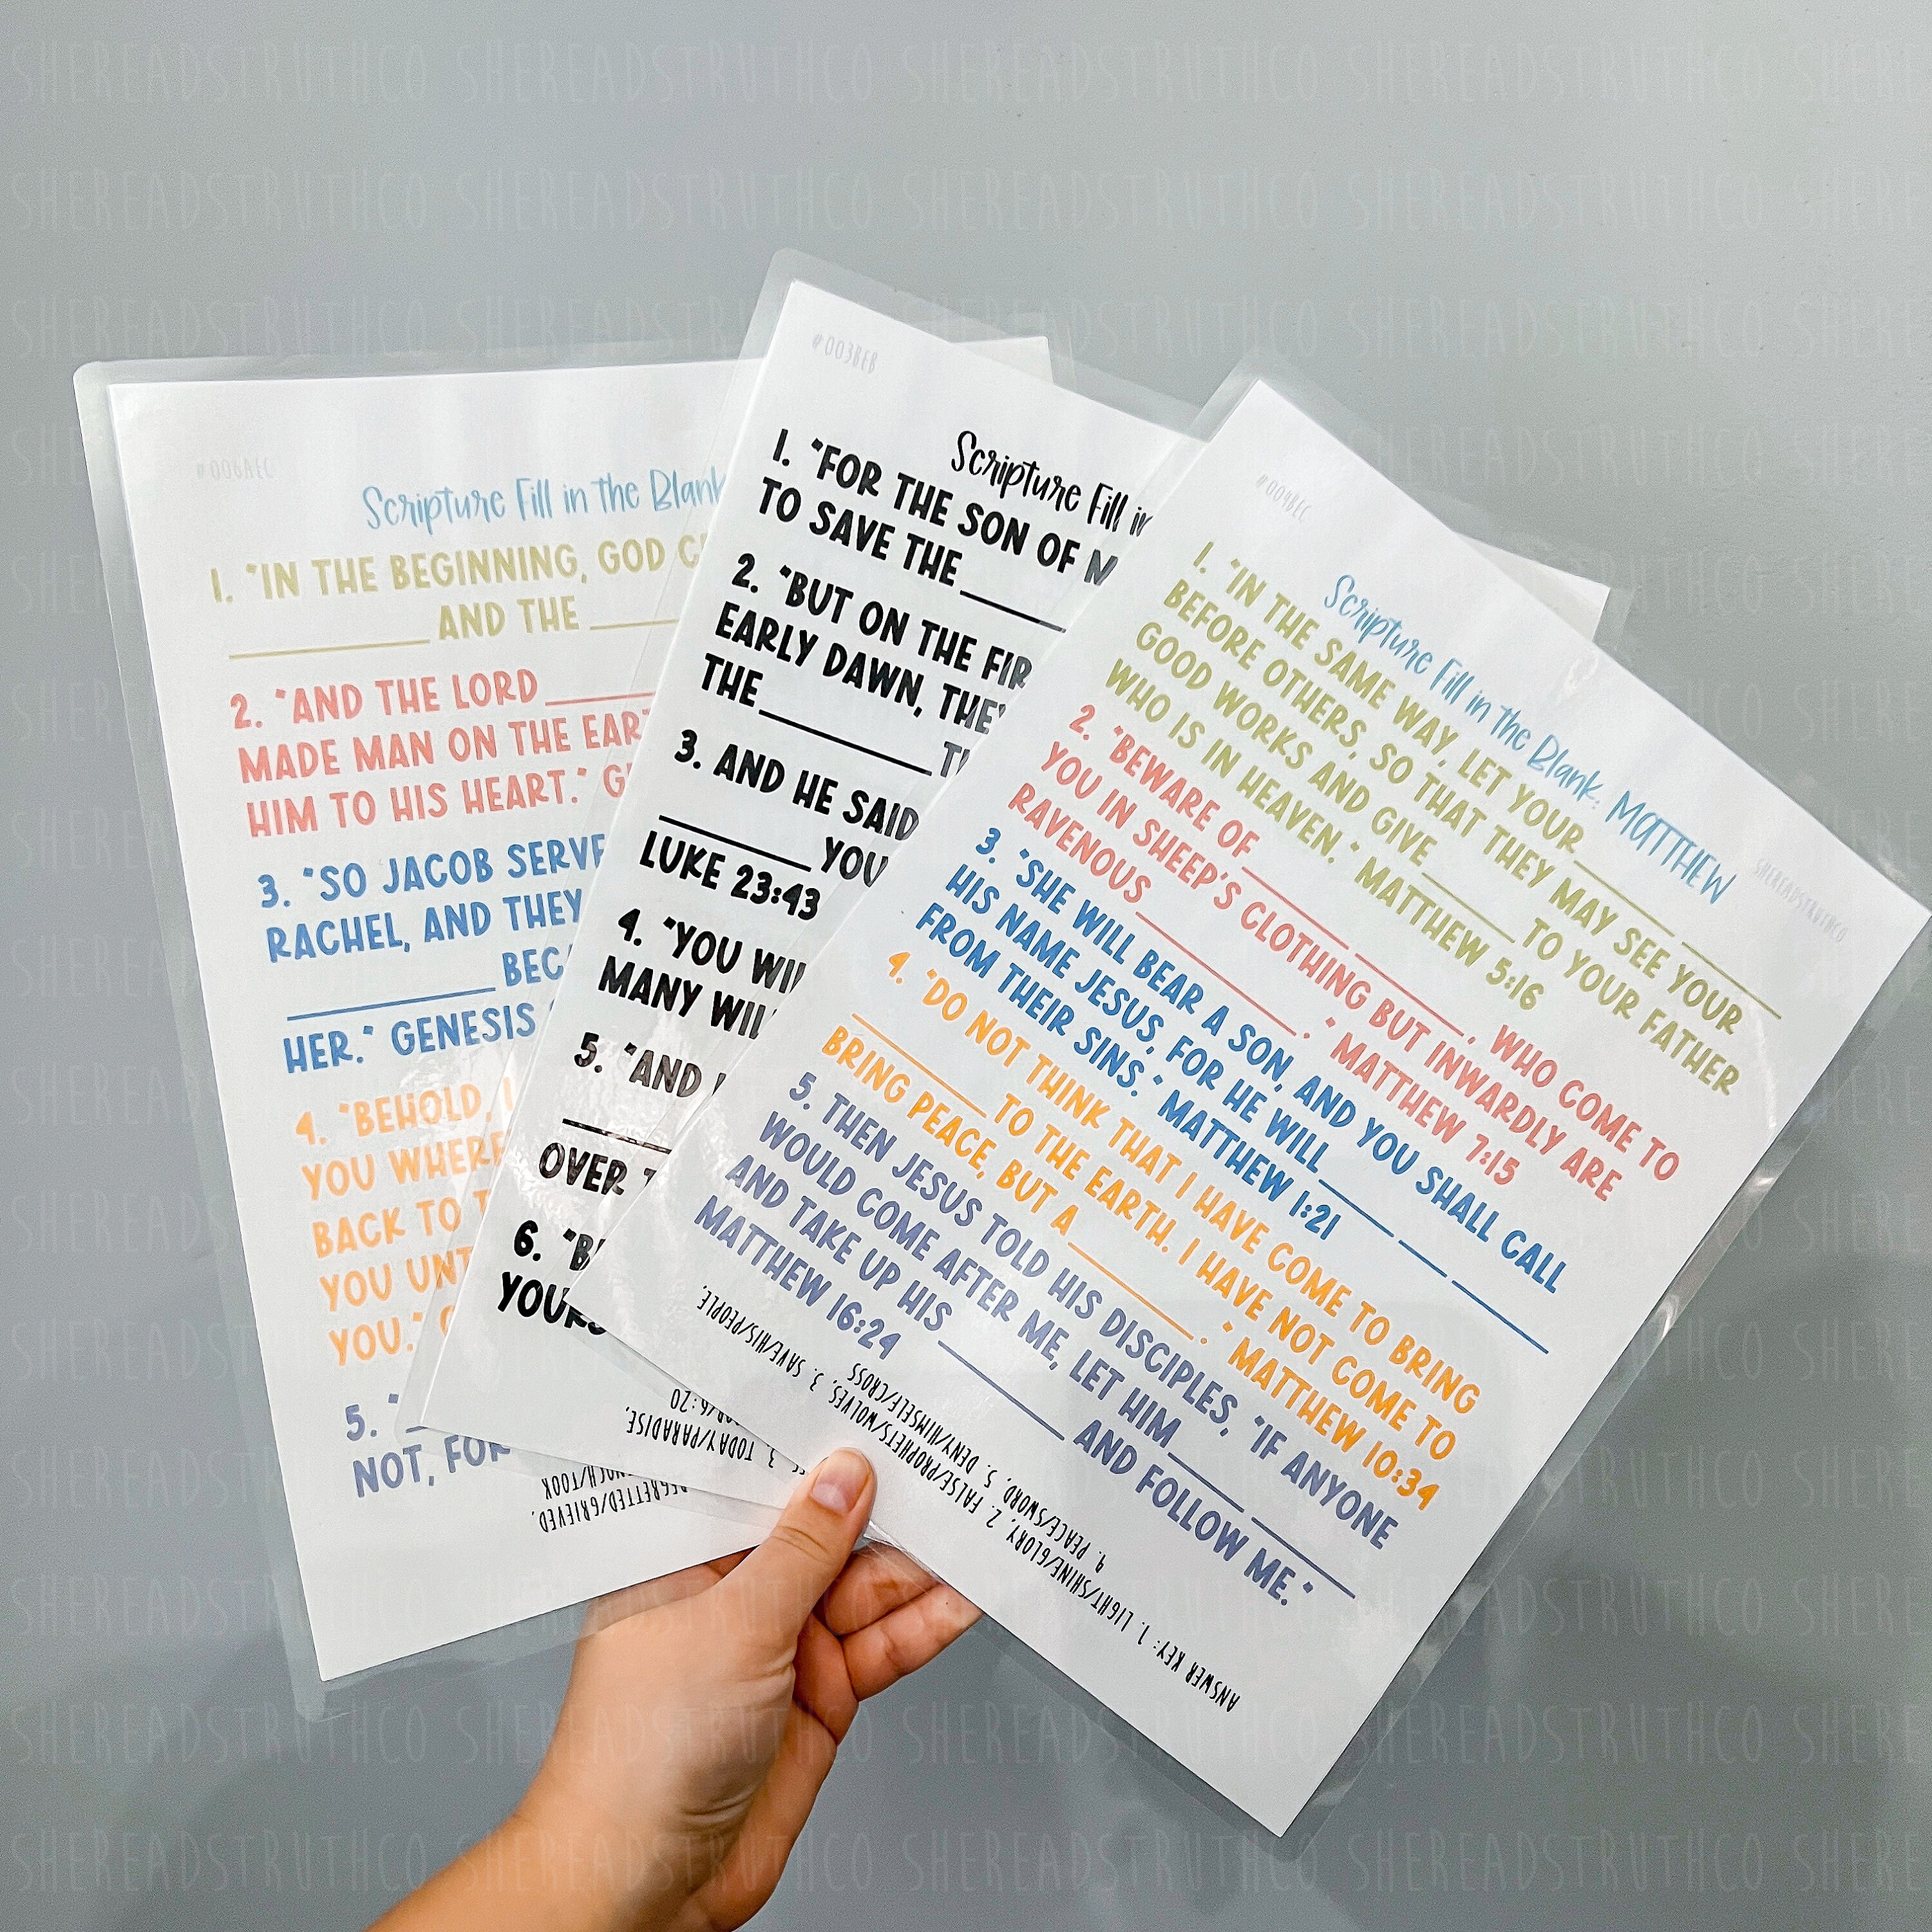 #006AEC
Scripture Fill in the Blank
1. "IN THE BEGINNING, GOD
__________ AND THE ______
2. "AND THE LORD ______
MADE MAN ON THE
HIM TO HIS HEART."
3. "SO JACOB
RACHEL, AND THEY
__________
HER." GENESIS
4. "BEHOLD, I
YOU WHERE
BACK TO
YOU
YOU."
5. "
NOT, FOR
REGRETTED/GRIEVED,
#003BEB
Scripture Fill in
1. "FOR THE SON OF
TO SAVE THE ______
2. "BUT ON THE
EARLY DAWN,
THE __________
3. AND HE SAID
__________ YOU
LUKE 23:43
4. "YOU
MANY
5. "AND
______
OVER
6.
3. TODAY/PARADISE,
#004BEC
SHEREADSTRUTHCO
Scripture Fill in the Blank: MATTHEW
1. "IN THE SAME WAY, LET YOUR ______ ______
BEFORE OTHERS, SO THAT THEY MAY SEE YOUR
GOOD WORKS AND GIVE ______ TO YOUR FATHER
WHO IS IN HEAVEN." MATTHEW 5:16
2. "BEWARE OF ______ ______, WHO COME TO
YOU IN SHEEP'S CLOTHING BUT INWARDLY ARE
RAVENOUS __________." MATTHEW 7:15
3. "SHE WILL BEAR A SON, AND YOU SHALL CALL
HIS NAME JESUS, FOR HE WILL ______ ______ ______
FROM THEIR SINS." MATTHEW 1:21
4. "DO NOT THINK THAT I HAVE COME TO BRING
__________ TO THE EARTH. I HAVE NOT COME TO
BRING PEACE, BUT A __________." MATTHEW 10:34
5. THEN JESUS TOLD HIS DISCIPLES, "IF ANYONE
WOULD COME AFTER ME, LET HIM ______ ______
AND TAKE UP HIS __________ AND FOLLOW ME."
MATTHEW 16:24
ANSWER KEY: 1. LIGHT/SHINE/GLORY, 2. FALSE/PROPHETS/WOLVES, 3. SAVE/HIS/PEOPLE,
4. PEACE/SWORD, 5. DENY/HIMSELF/CROSS